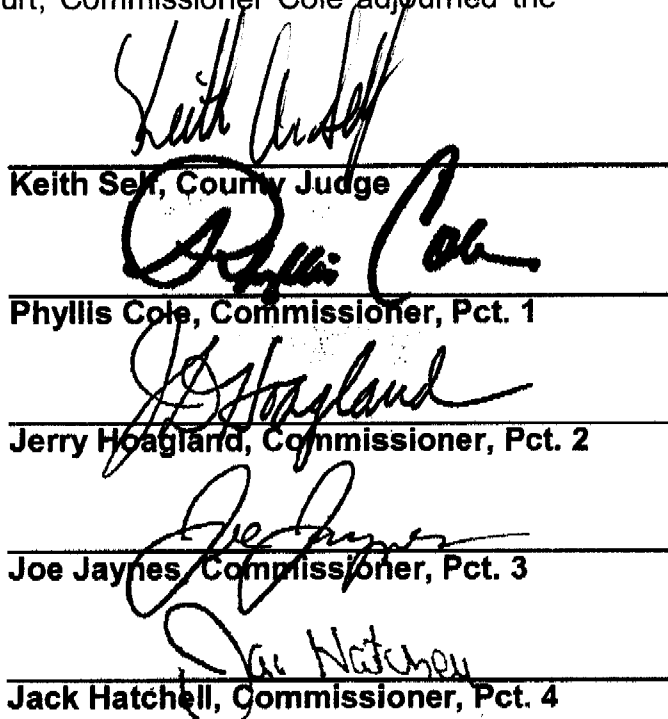 urt, Commissioner Cole adjourned the
Keith A Self
Keith Self, County Judge
Phyllis Cole
Phyllis Cole, Commissioner, Pct. 1
JD Hoagland
Jerry Hoagland, Commissioner, Pct. 2
Joe Jaynes
Joe Jaynes, Commissioner, Pct. 3
Jack Hatchell
Jack Hatchell, Commissioner, Pct. 4